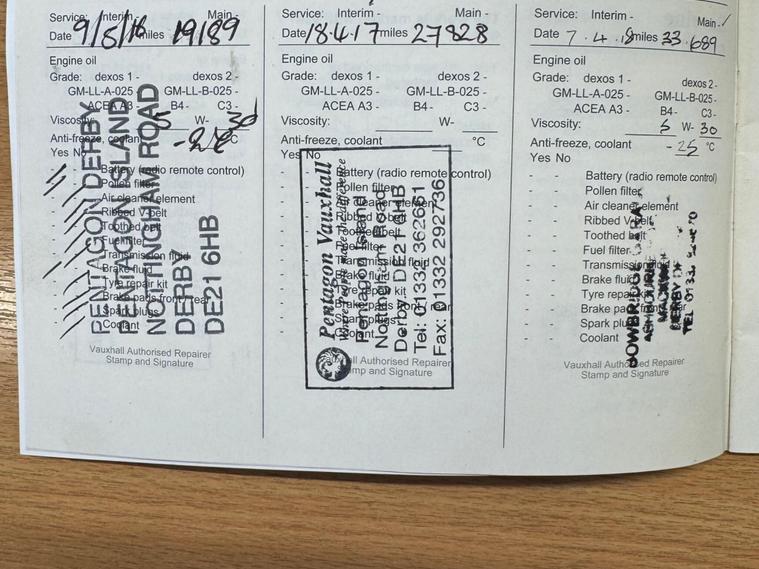 Service: Interim - Main -
Date 9/5/16 miles 19189
Engine oil
Grade: dexos 1 - dexos 2 -
GM-LL-A-025 - GM-LL-B-025 -
ACEA A3 - B4 - C3 -
Viscosity: 5 W- 30
Anti-freeze, coolant °C
Yes No
- - Battery (radio remote control)
- - Pollen filter
- - Air cleaner element
- - Ribbed V-belt
- - Toothed belt
- - Fuel filter
- - Transmission fluid
- - Brake fluid
- - Tyre repair kit
- - Brake pads front / rear
- - Spark plugs
- - Coolant
PENTAGON DERBY
PENTAGON ISLAND
NOTTINGHAM ROAD
DERBY
DE21 6HB
Vauxhall Authorised Repairer
Stamp and Signature
Service: Interim - Main -
Date 18.4.17 miles 27828
Engine oil
Grade: dexos 1 - dexos 2 -
GM-LL-A-025 - GM-LL-B-025 -
ACEA A3 - B4 - C3 -
Viscosity: W-
Anti-freeze, coolant °C
Yes No
- - Battery (radio remote control)
- - Pollen filter
- - Air cleaner element
- - Ribbed V-belt
- - Toothed belt
- - Fuel filter
- - Transmission fluid
- - Brake fluid
- - Tyre repair kit
- - Brake pads front / rear
- - Spark plugs
- - Coolant
Pentagon Vauxhall
Where people make the difference
Pentagon Island
Nottingham Road
Derby DE21 6HB
Tel: 01332 362661
Fax: 01332 292736
Vauxhall Authorised Repairer
Stamp and Signature
Service: Interim - Main - ✓
Date 7.4.18 miles 33.689
Engine oil
Grade: dexos 1 - dexos 2 -
GM-LL-A-025 - GM-LL-B-025 -
ACEA A3 - B4 - C3 -
Viscosity: 5 W- 30
Anti-freeze, coolant -25 °C
Yes No
- - Battery (radio remote control)
- - Pollen filter
- - Air cleaner element
- - Ribbed V-belt
- - Toothed belt
- - Fuel filter
- - Transmission fluid
- - Brake fluid
- - Tyre repair kit
- - Brake pads front / rear
- - Spark plugs
- - Coolant
DERBY
TEL 01332
Vauxhall Authorised Repairer
Stamp and Signature